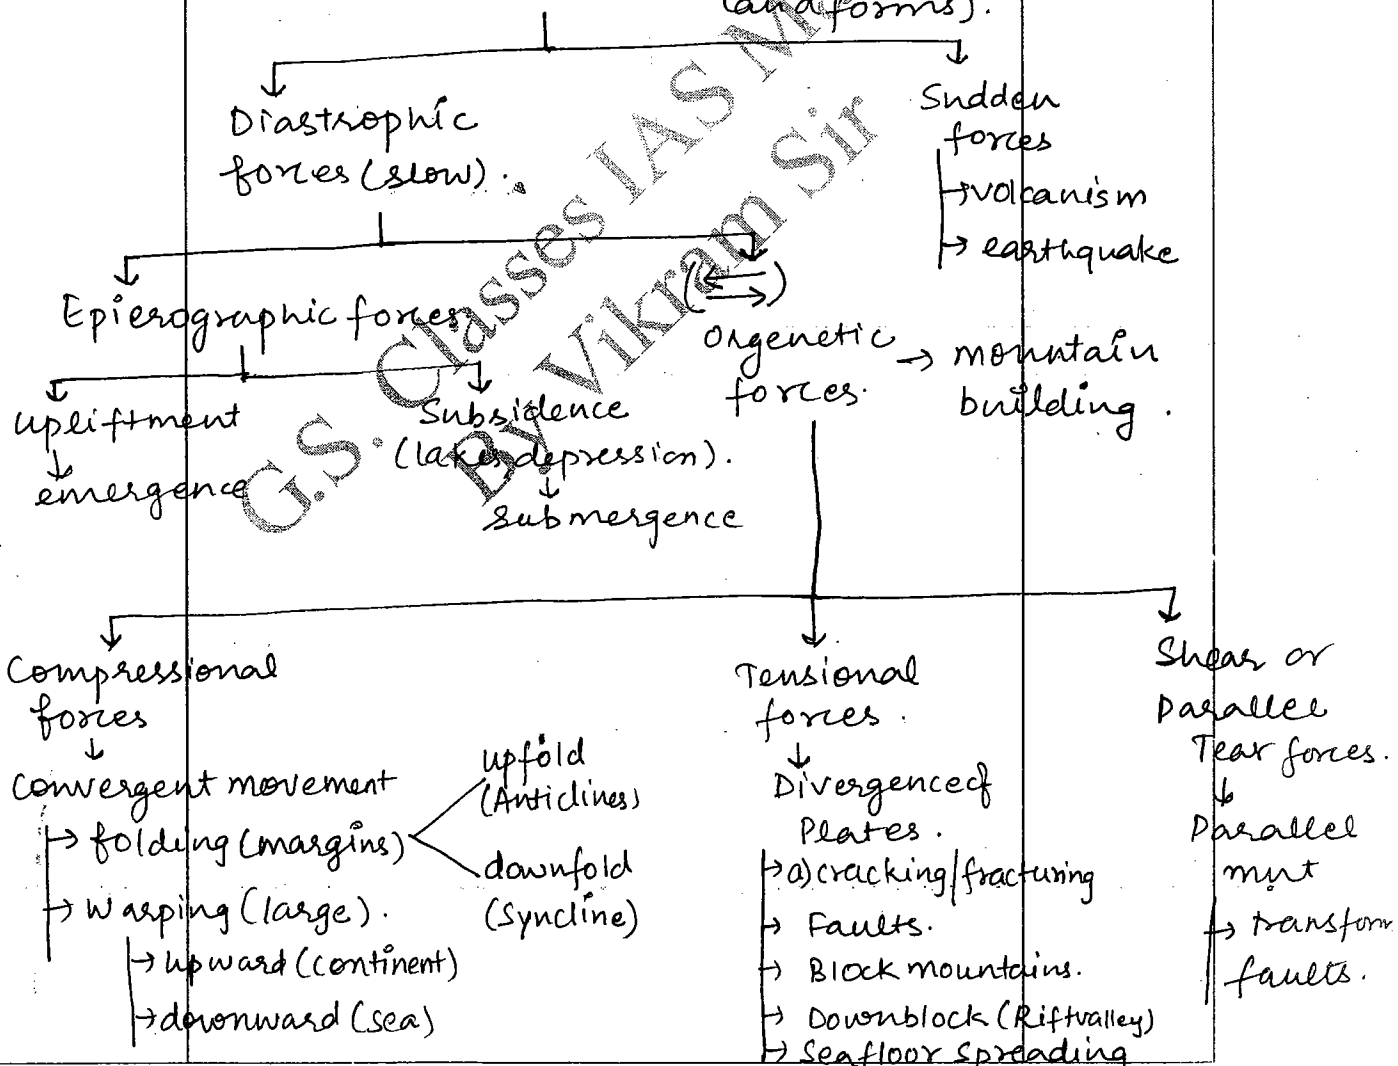 (landforms).
Diastrophic
forces (slow).
Sudden
forces
→ volcanism
→ earthquake
Epierographic forces
(⇄)
Orgenetic
forces.
→ mountain
building.
upliftment
↓
emergence
Subsidence
(lakes, depression).
↓
submergence
Compressional
forces
↓
Convergent movement
→ folding (margins)
upfold
(Anticlines)
downfold
(Syncline)
→ Warping (large).
→ upward (continent)
→ downward (sea)
Tensional
forces.
↓
Divergence of
Plates.
→ a) cracking/fracturing
→ Faults.
→ Block mountains.
→ Downblock (Riftvalley)
→ Seafloor spreading
Shear or
Parallel
Tear forces.
↓
Parallel
mvt
→ transform
faults.
G.S. Classes IAS M
By Vikram Sir